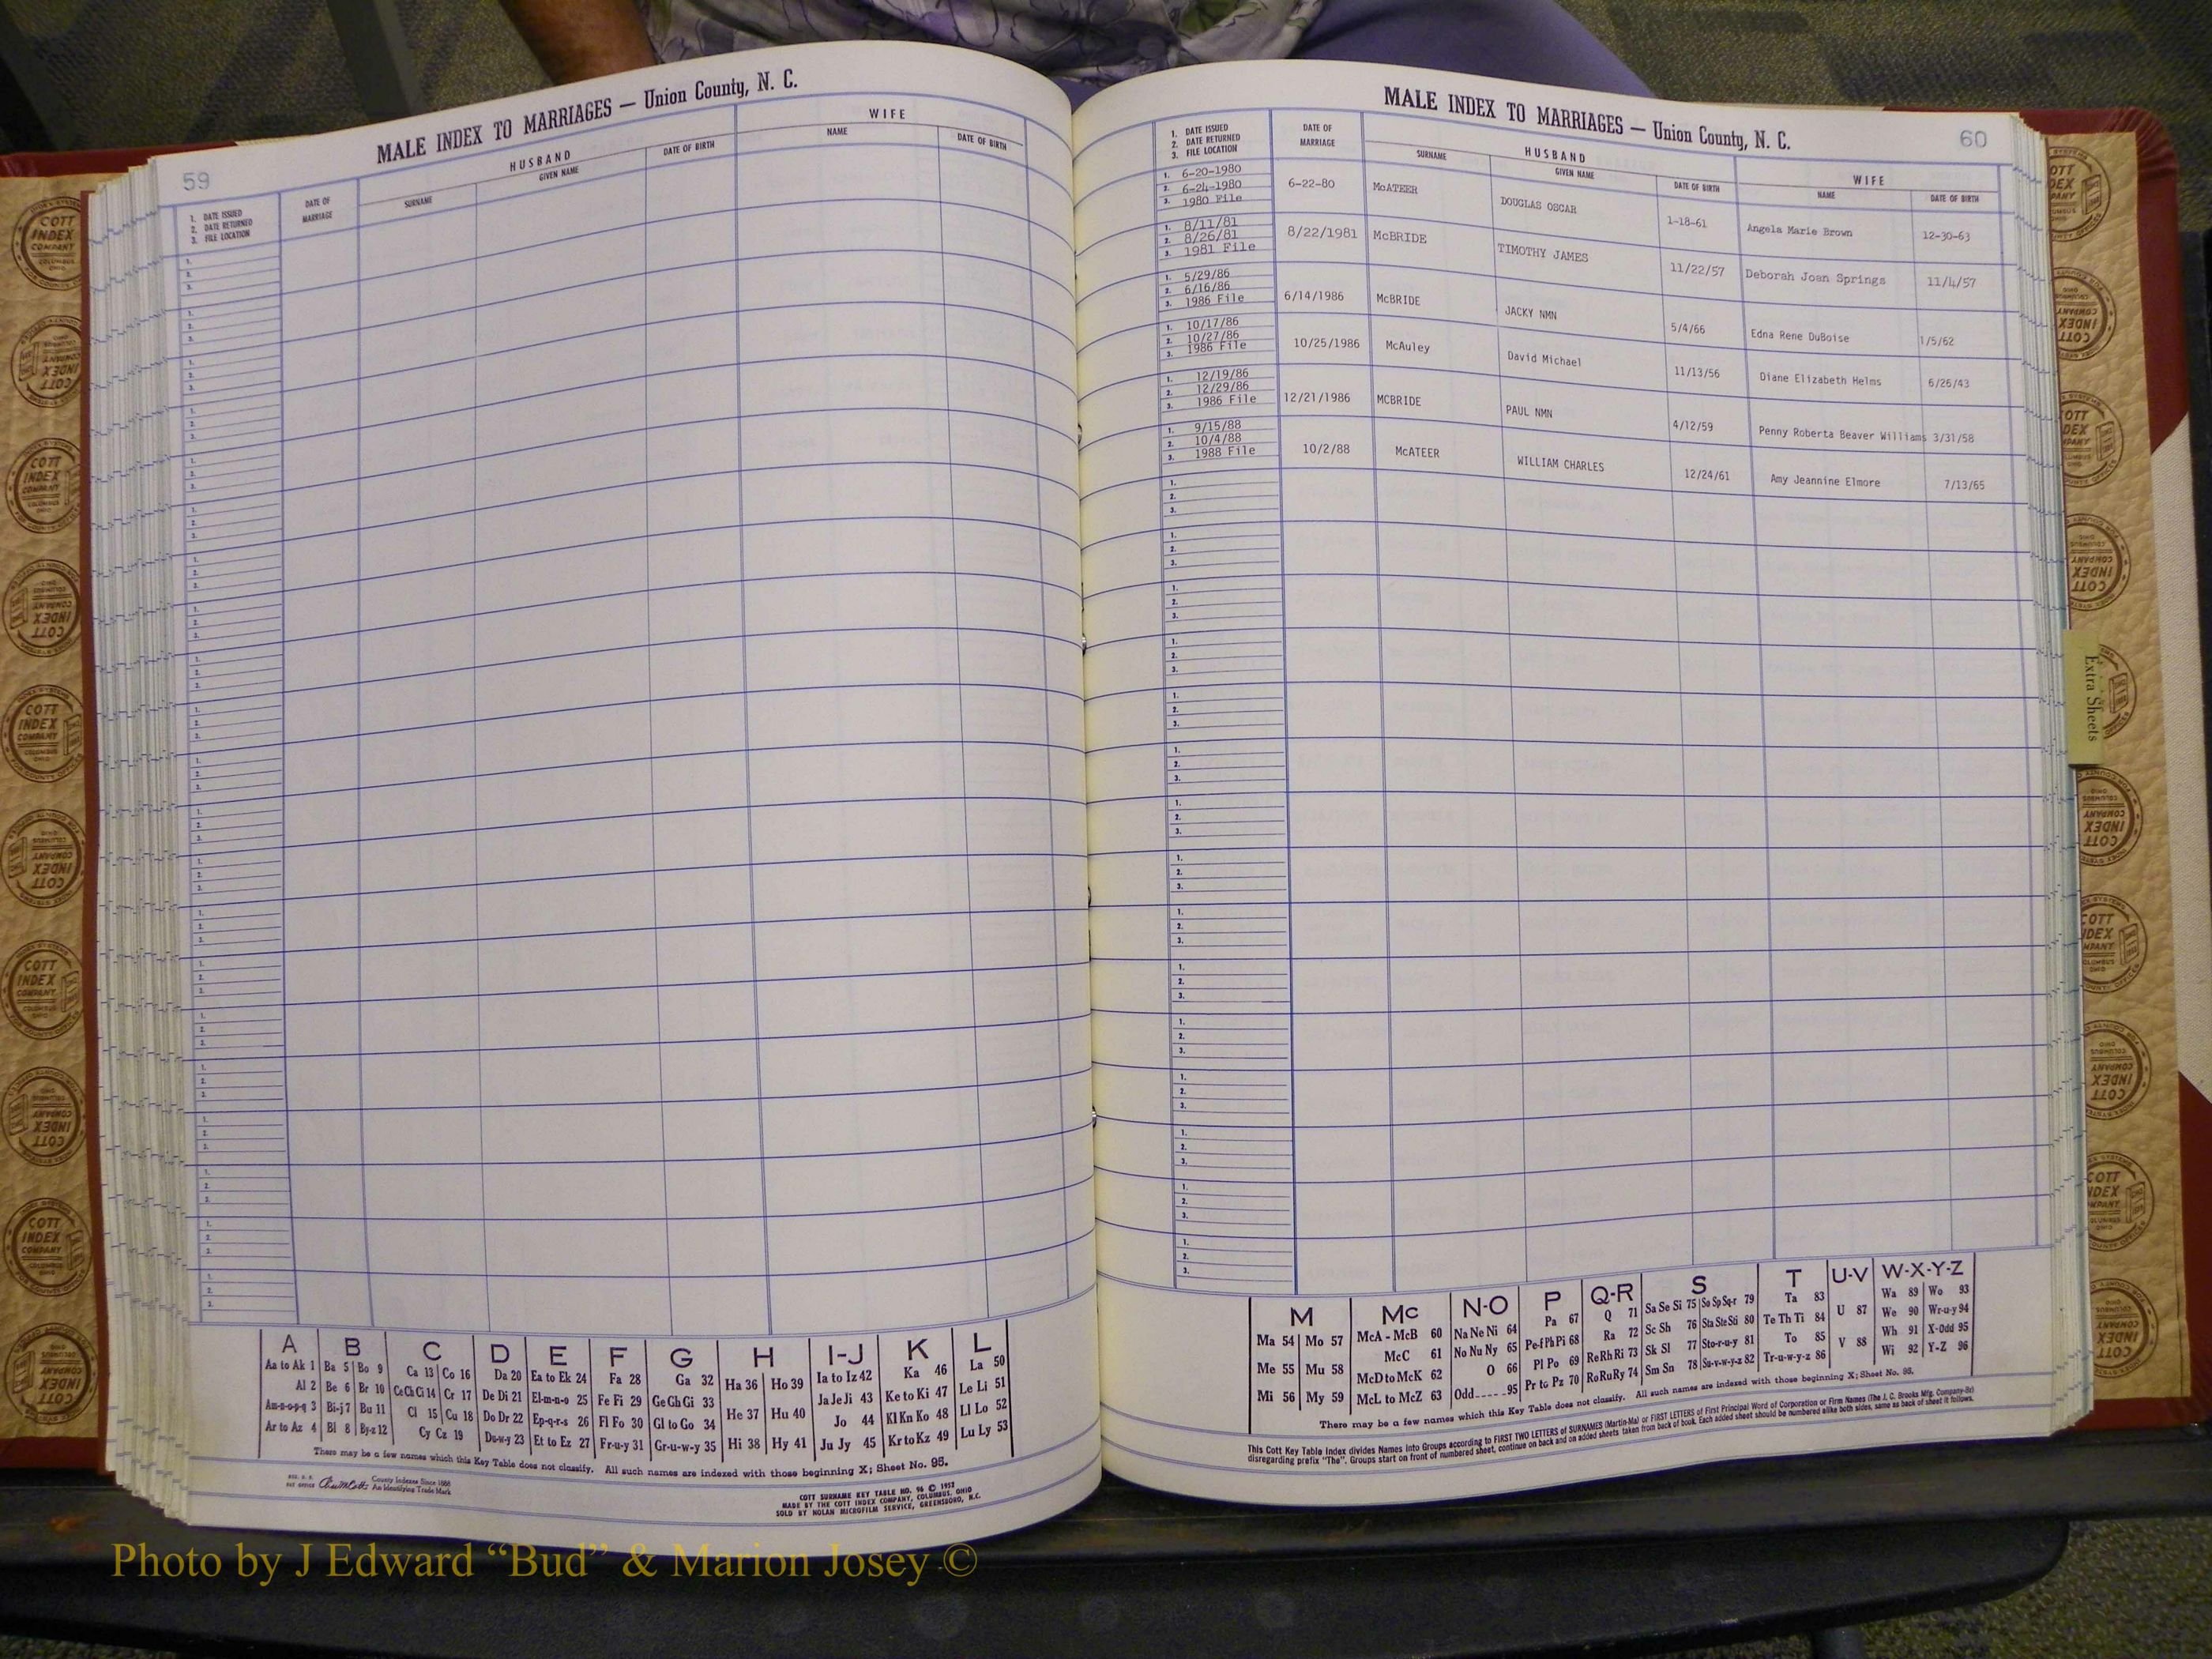 59
MALE INDEX TO MARRIAGES — Union County, N. C.
1. DATE ISSUED
2. DATE RETURNED
3. FILE LOCATION
DATE OF MARRIAGE
HUSBAND
SURNAME
GIVEN NAME
DATE OF BIRTH
WIFE
NAME
DATE OF BIRTH
A B C D E F G H I-J K L
Aa to Ak 1 Ba 5 Bo 9 Ca 13 Co 16 Da 20 Ea to Ek 24 Fa 28 Ga 32 Ha 36 Ho 39 Ia to Iz 42 Ka 46 La 50
Al 2 Be 6 Br 10 Ce Ch Ci 14 Cr 17 De Di 21 El-m-n-o 25 Fe Fi 29 Ge Gh Gi 33 He 37 Hu 40 Ja Je Ji 43 Ke to Ki 47 Le Li 51
Am-n-o-p-q 3 Bi-j 7 Bu 11 Cl 15 Cu 18 Do Dr 22 Ep-q-r-s 26 Fl Fo 30 Gl to Go 34 Hi 38 Hy 41 Jo 44 Kl Kn Ko 48 Ll Lo 52
Ar to Az 4 Bl 8 By-z 12 Cy Cz 19 Du-w-y 23 Et to Ez 27 Fr-u-y 31 Gr-u-w-y 35 Ju Jy 45 Kr to Kz 49 Lu Ly 53
There may be a few names which this Key Table does not classify. All such names are indexed with those beginning X; Sheet No. 95.
County Indexes Since 1888
An Identifying Trade Mark
COTT SURNAME KEY TABLE NO. 96 © 1953
MADE BY THE COTT INDEX COMPANY, COLUMBUS, OHIO
SOLD BY NOLAN MICROFILM SERVICE, GREENSBORO, N.C.
60
MALE INDEX TO MARRIAGES — Union County, N. C.
1. DATE ISSUED
2. DATE RETURNED
3. FILE LOCATION
DATE OF MARRIAGE
HUSBAND
SURNAME
GIVEN NAME
DATE OF BIRTH
WIFE
NAME
DATE OF BIRTH
1. 6-20-1980
2. 6-24-1980
3. 1980 File
6-22-80 McATEER DOUGLAS OSCAR 1-18-61 Angela Marie Brown 12-30-63
1. 8/11/81
2. 8/26/81
3. 1981 File
8/22/1981 McBRIDE TIMOTHY JAMES 11/22/57 Deborah Joan Springs 11/4/57
1. 5/29/86
2. 6/16/86
3. 1986 File
6/14/1986 McBRIDE JACKY NMN 5/4/66 Edna Rene DuBoise 1/5/62
1. 10/17/86
2. 10/27/86
3. 1986 File
10/25/1986 McAuley David Michael 11/13/56 Diane Elizabeth Helms 6/26/43
1. 12/19/86
2. 12/29/86
3. 1986 File
12/21/1986 MCBRIDE PAUL NMN 4/12/59 Penny Roberta Beaver Williams 3/31/58
1. 9/15/88
2. 10/4/88
3. 1988 File
10/2/88 McATEER WILLIAM CHARLES 12/24/61 Amy Jeannine Elmore 7/13/65
Extra Sheets
M Mc N-O P Q-R S T U-V W-X-Y-Z
Ma 54 Mo 57 McA - McB 60 Na Ne Ni 64 Pa 67 Q 71 Sa Se Si 75 So Sp Sq-r 79 Ta 83 U 87 Wa 89 Wo 93
Me 55 Mu 58 McC 61 No Nu Ny 65 Pe-f Ph Pi 68 Ra 72 Sc Sh 76 Sta Ste Sti 80 Te Th Ti 84 V 88 We 90 Wr-u-y 94
Mi 56 My 59 McD to McK 62 O 66 Pl Po 69 Re Rh Ri 73 Sk Sl 77 Sto-r-u-y 81 To 85 Wh 91 X-Odd 95
McL to McZ 63 Odd 95 Pr to Pz 70 Ro Ru Ry 74 Sm Sn 78 Su-v-w-y-z 82 Tr-u-w-y-z 86 Wi 92 Y-Z 96
There may be a few names which this Key Table does not classify. All such names are indexed with those beginning X; Sheet No. 95.
This Cott Key Table Index divides Names into Groups according to FIRST TWO LETTERS of SURNAMES (Martin-Ma) or FIRST LETTERS of First Principal Word of Corporation or Firm Names (The J. C. Brooks Mfg. Company-Br)
disregarding prefix "The". Groups start on front of numbered sheet, continue on back and on added sheets taken from back of book. Each added sheet should be numbered alike both sides, same as back of sheet it follows.
COTT INDEX COMPANY COLUMBUS OHIO
Photo by J Edward “Bud” & Marion Josey ©